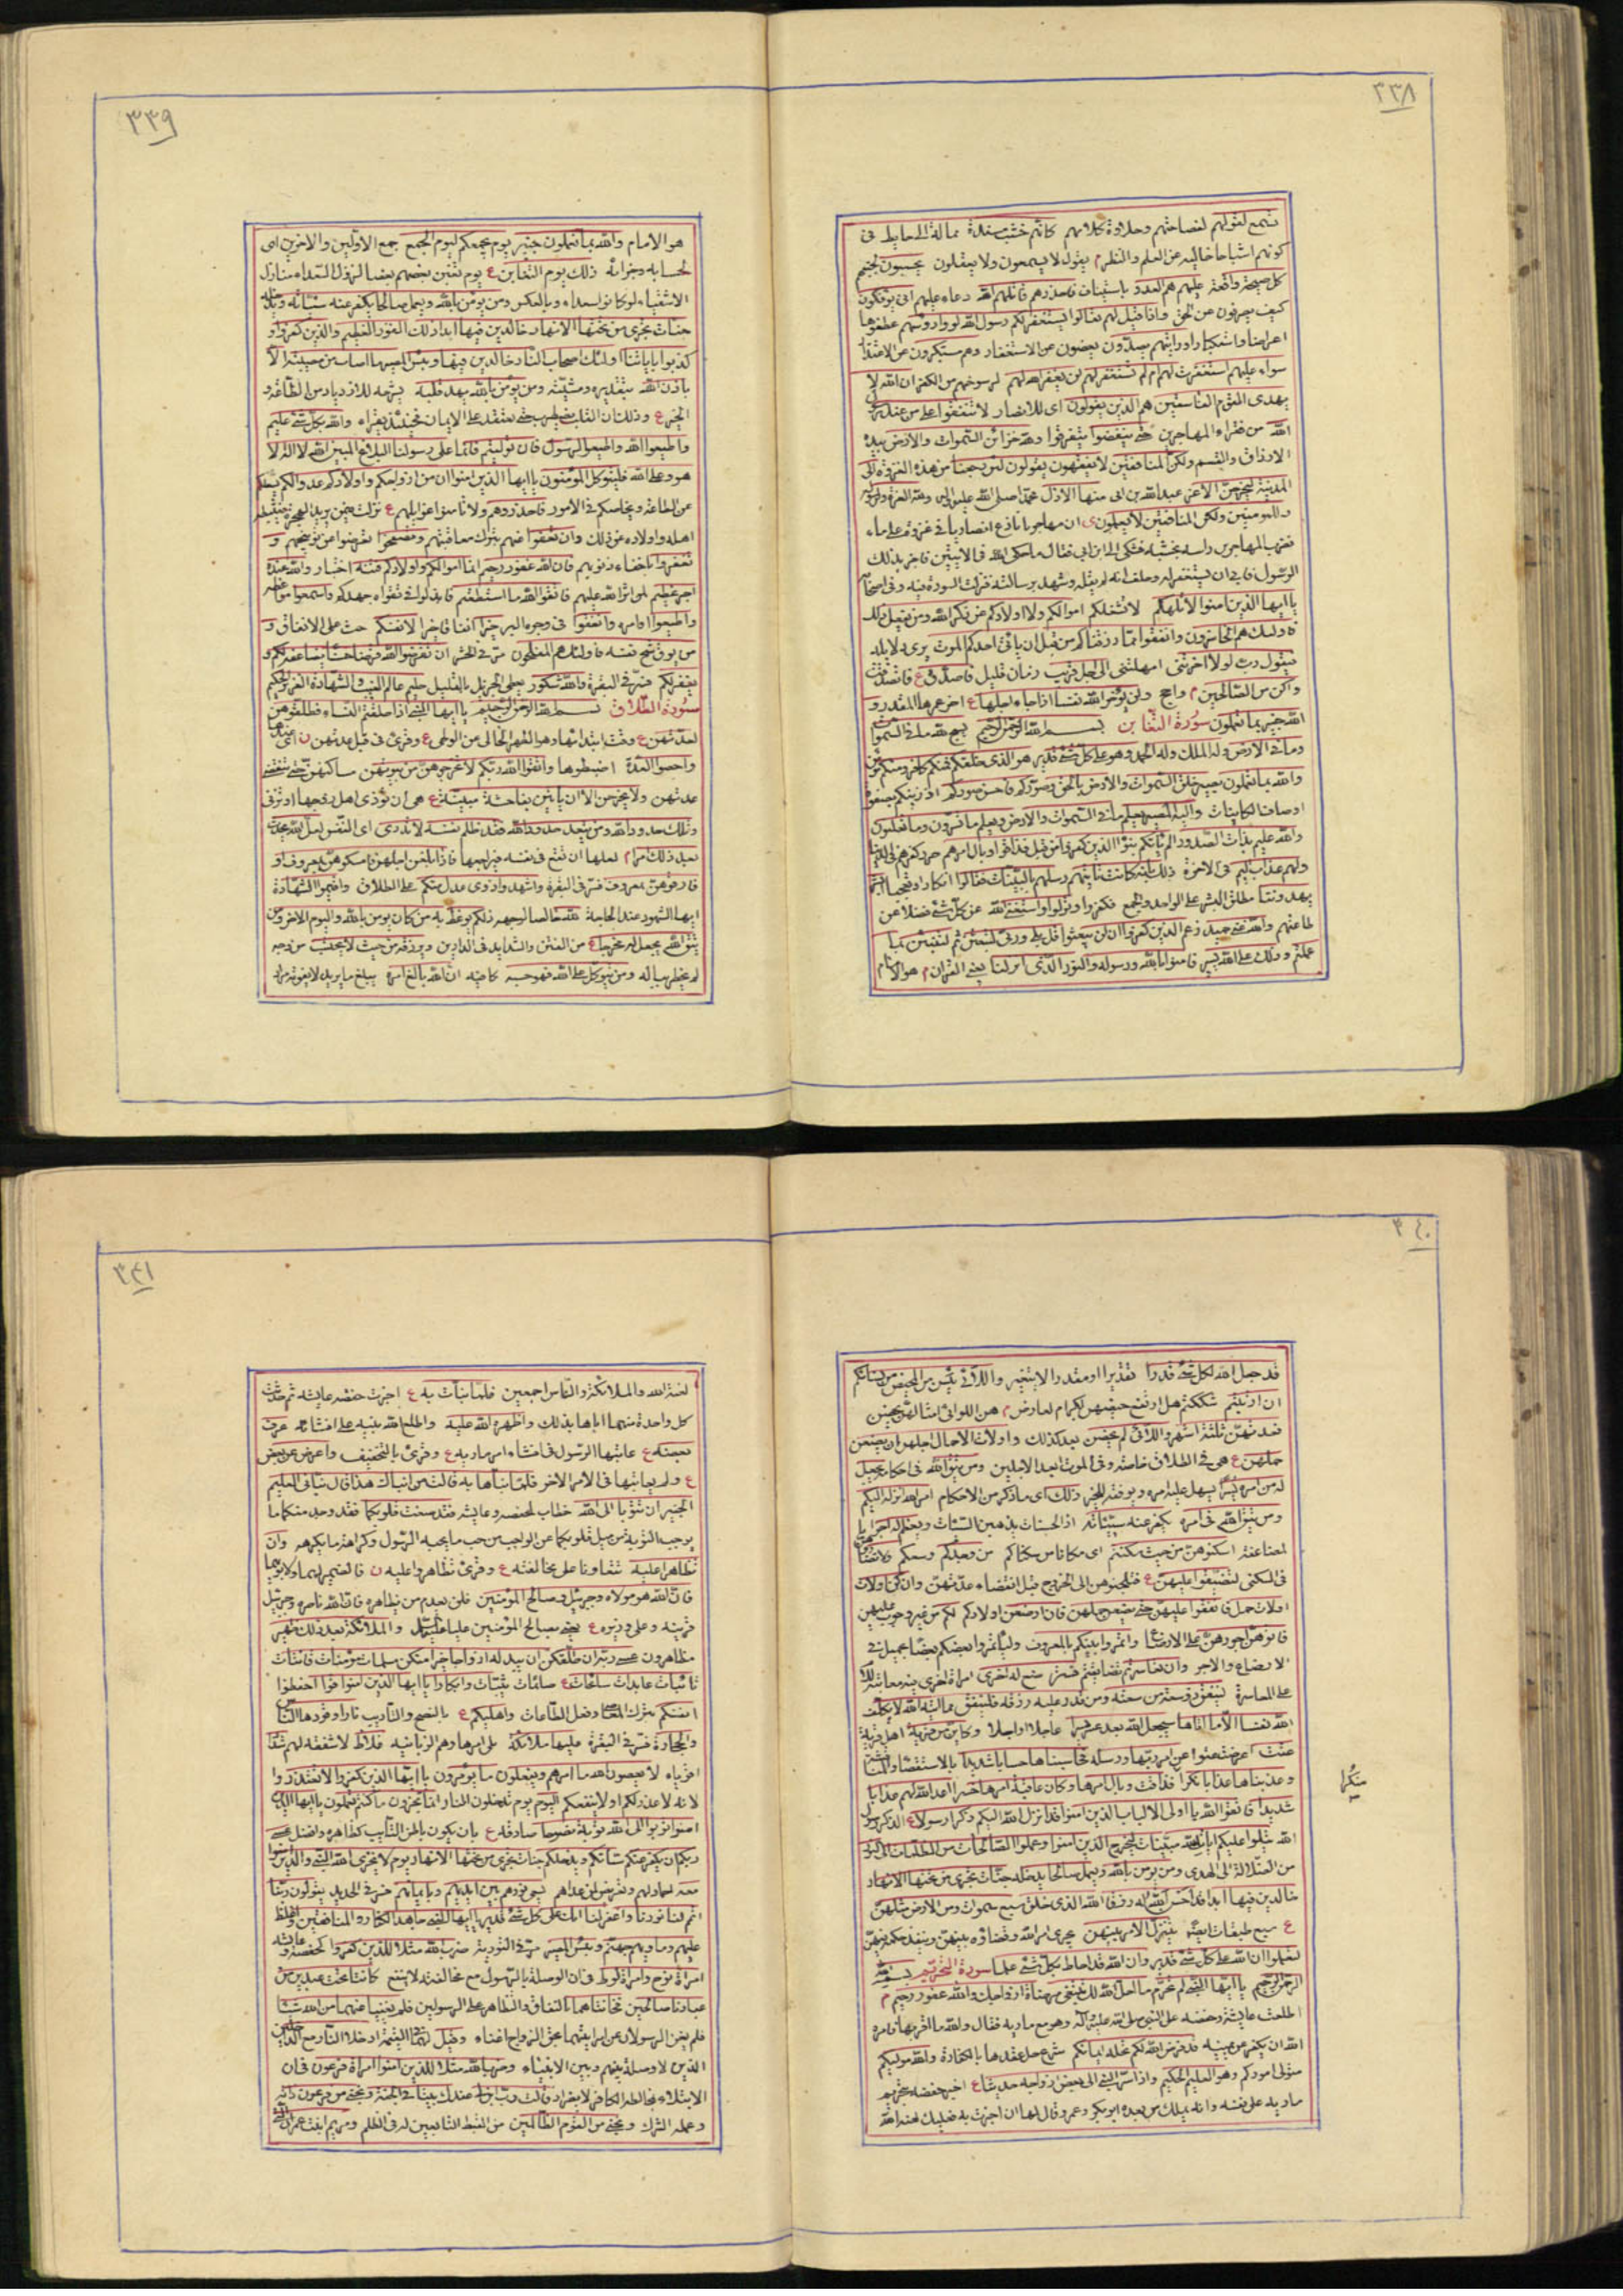 ٣٣٨
تسمع لقولهم لفصاحتهم وحلاوة كلامهم كانهم خشب مسندة ممالة الى حايط فى
كونهم اشباحا خاليه عن العلم والنظر م يقول لا يسمعون ولا يعقلون يحسبون لجبنهم
كل صيحة واقعة عليهم هم العدو باستيناف فاحذرهم قاتلهم الله دعاء عليهم انى يؤفكون
كيف يصرفون عن الحق واذا قيل لهم تعالوا يستغفر لكم رسول الله لووا رؤسهم عطفوها
اعراضا واستكبارا ورايتهم يصدون يعضون عن الاستغفار وهم مستكبرون عن الاعتذار
سواء عليهم استغفرت لهم ام لم تستغفر لهم لن يغفر الله لهم لرسوخهم من الكفر ان الله لا
يهدى القوم الفاسقين هم الذين يقولون اى للانصار لا تنفقوا على من عند رسول
الله من فقراء المهاجرين حتى ينفضوا يتفرقوا ولله خزائن السموات والارض بيده
الارزاق والقسم ولكن المنافقين لا يفقهون يقولون لئن رجعنا من هذه الغزوة الى
المدينة ليخرجن الاعز عبد الله بن ابى منها الاذل محمدا صلى الله عليه واله ولله العزة ولرسوله
وللمومنين ولكن المنافقين لا يعلمون ى ان مهاجريا نازع انصاريا فى غزوة على ماء
فضرب المهاجرى راسه بخشبة فشكى الى ابن ابى فقال ما حكى الله فى الايتين فاخبر بذلك
الرسول فابى ان يستغفر له وحلف انه لم يقله وشهد برسالته فنزلت السورة فيه وفى اصحابه
يا ايها الذين امنوا لا تلهكم لا تشغلكم اموالكم ولا اولادكم عن ذكر الله ومن يفعل ذلك
فاولئك هم الخاسرون وانفقوا مما رزقناكم من قبل ان ياتى احدكم الموت يرى دلايله
فيقول رب لولا اخرتنى امهلتنى الى اجل قريب زمان قليل فاصدق ع فاتصدق
واكن من الصالحين م واحج ولن يؤخر الله نفسا اذا جاء اجلها ع اخر عمرها المقدر و
الله خبير بما تعملون سورة التغابن بسم الله الرحمن الرحيم يسبح لله ما فى السموات
وما فى الارض وله الملك وله الحمد وهو على كل شئ قدير هو الذى خلقكم فمنكم كافر ومنكم مؤمن
والله بما تعملون بصير خلق السموات والارض بالحق وصوركم فاحسن صوركم اذ زينكم بصفوة
اوصاف الكاينات واليه المصير يعلم ما فى السموات والارض ويعلم ما تسرون وما تعلنون
والله عليم بذات الصدور الم ياتكم نبؤا الذين كفروا من قبل فذاقوا وبال امرهم ضرر كفرهم فى الدنيا
ولهم عذاب اليم فى الاخرة ذلك بانه كانت تاتيهم رسلهم بالبينات فقالوا انكارا وتعجبا ابشر
يهدوننا يطلق البشر على الواحد والجمع فكفروا وتولوا واستغنى الله عن كل شئ فضلا عن
طاعتهم والله غنى حميد زعم الذين كفروا ان لن يبعثوا قل بلى وربى لتبعثن ثم لتنبئن بما
عملتم وذلك على الله يسير فامنوا بالله ورسوله والنور الذى انزلنا يعنى القران م هو الامام
٣٣٩
هو الامام والله بما تعملون خبير يوم يجمعكم ليوم الجمع جمع الاولين والاخرين اى
لحسابه وجزائه ذلك يوم التغابن ع يوم تغبن بعضهم بعضا لنزول السعداء منازل
الاشقياء لو كانوا سعداء وبالعكس ومن يؤمن بالله ويعمل صالحا يكفر عنه سيئاته ويدخله
جنات تجرى من تحتها الانهار خالدين فيها ابدا ذلك الفوز العظيم والذين كفروا و
كذبوا باياتنا اولئك اصحاب النار خالدين فيها وبئس المصير ما اصاب من مصيبة الا
باذن الله بتقديره ومشيته ومن يؤمن بالله يهد قلبه يشرحه للازدياد من الطاعة و
الخير ع وذلك ان القلب يضطرب حتى يعتقد على الايمان فحينئذ يقراء والله بكل شئ عليم
واطيعوا الله واطيعوا الرسول فان توليتم فانما على رسولنا البلاغ المبين الله لا اله الا
هو وعلى الله فليتوكل المؤمنون يا ايها الذين امنوا ان من ازواجكم واولادكم عدوا لكم
عن الطاعة ويخاصمكم فى الامور فاحذروهم ولا تامنوا غوايلهم ع نزلت فيمن يريد الهجرة
اهله واولاده عن ذلك وان تعفوا عنهم بترك معاقبتهم وتصفحوا تعرضوا عن توبيخهم و
تغفروا باخفاء ذنوبهم فان الله غفور رحيم انما اموالكم واولادكم فتنة اختبار والله عنده
اجر عظيم لمن اثر الله عليهم فاتقوا الله ما استطعتم فابذلوا فى تقواه جهدكم واسمعوا مواعظه
واطيعوا اوامره وانفقوا فى وجوه البر خيرا انفاقا خيرا لانفسكم حث على الانفاق و
من يوق شح نفسه فاولئك هم المفلحون مر فى الحشر ان تقرضوا الله قرضا حسنا يضاعفه لكم و
يغفر لكم فسر فى البقرة والله شكور يعطى الجزيل بالقليل حليم عالم الغيب والشهادة العزيز الحكيم
سورة الطلاق بسم الله الرحمن الرحيم يا ايها النبى اذا طلقتم النساء فطلقوهن
لعدتهن ع وقت ابتدائها وهو الطهر الخالى من الوطى ع وقرئ فى قبل عدتهن ن اى
واحصوا العدة اضبطوها واتقوا الله ربكم لا تخرجوهن من بيوتهن ساكنهن حتى تنقضى
عدتهن ولا يخرجن الا ان ياتين بفاحشة مبينة ع هى ان تؤذى اهل زوجها او تزنى
وتلك حدود الله ومن يتعد حدود الله فقد ظلم نفسه لا تدرى اى النفس لعل الله يحدث
بعد ذلك امرا م لعلها ان تقع فى نفسه فيراجعها فاذا بلغن اجلهن فامسكوهن بمعروف او
فارقوهن بمعروف فسر فى البقرة واشهدوا ذوى عدل منكم على الطلاق واقيموا الشهادة
ايها الشهود عند الحاجة لله خالصا لوجهه ذلكم يوعظ به من كان يؤمن بالله واليوم الاخر ومن
يتق الله يجعل له مخرجا ع من الفتن والشدايد فى الدارين ويرزقه من حيث لا يحتسب من وجه
لم يخطر بباله ومن يتوكل على الله فهو حسبه كافيه ان الله بالغ امره يبلغ ما يريد لا يفوته مراد
٣٤٠
قد جعل الله لكل شئ قدرا تقديرا او مقدارا لا يتغير واللائى يئسن من المحيض من نسائكم
ان ارتبتم شككتم هل ارتفع حيضهن لكبر ام لعارض م هن اللواتى امثالهن يحضن
فعدتهن ثلثة اشهر واللائى لم يحضن بعد كذلك واولات الاحمال اجلهن ان يضعن
حملهن ع هى فى الطلاق خاصة وفى الموت ابعد الاجلين ومن يتق الله فى احكامه يجعل
له من امره يسرا يسهل عليه امره ويوفقه للخير ذلك اى ما ذكر من الاحكام امر الله انزله اليكم
ومن يتق الله فى امره يكفر عنه سيئاته اذ الحسنات يذهبن السيئات ويعظم له اجرا
لمضاعفة اسكنوهن من حيث سكنتم اى مكانا من سكناكم من وجدكم وسعكم ولا تضاروهن
فى السكنى لتضيقوا عليهن ع فتلجئوهن الى الخروج قبل انقضاء عدتهن وان كن اولات
اولات حمل فانفقوا عليهن حتى يضعن حملهن فان ارضعن اولادكم لكم من غير وجوب عليهن
فاتوهن اجورهن على الارضاع واتمروا بينكم بالمعروف وليأتمروا بعضكم بعضا بجميل فى
الارضاع والاجر وان تعاسرتم تضايقتم فسترضع له اخرى امراة اخرى فيه معاتبة للام
على المعاسرة لينفق ذو سعة من سعته ومن قدر عليه رزقه فلينفق مما اتيه الله لا يكلف
الله نفسا الا ما اتاها سيجعل الله بعد عسر يسرا عاجلا او اجلا وكاين من قرية اهل قرية
عتت اعرضت عتوا عن امر ربها ورسله فحاسبناها حسابا شديدا بالاستقصاء والمناقشة
وعذبناها عذابا نكرا فذاقت وبال امرها وكان عاقبة امرها خسرا اعد الله لهم عذابا
شديدا فاتقوا الله يا اولى الالباب الذين امنوا قد انزل الله اليكم ذكرا رسولا ع الذكر رسول
الله يتلوا عليكم ايات الله مبينات ليخرج الذين امنوا وعملوا الصالحات من الظلمات الى النور
من الضلالة الى الهدى ومن يؤمن بالله ويعمل صالحا يدخله جنات تجرى من تحتها الانهار
خالدين فيها ابدا قد احسن الله له رزقا الله الذى خلق سبع سموات ومن الارض مثلهن
ع سبع طبقات يتنزل الامر بينهن يجرى امر الله وقضاؤه بينهن وينفذ حكمه فيهن
لتعلموا ان الله على كل شئ قدير وان الله قد احاط بكل شئ علما سورة التحريم بسم الله
الرحمن الرحيم يا ايها النبى لم تحرم ما احل الله لك تبتغى مرضاة ازواجك والله غفور رحيم م
اطلعت عايشة وحفصه على النبى صلى الله عليه وآله وهو مع ماريه فقال والله ما اقربها فامره
الله ان يكفر عن يمينه قد فرض الله لكم تحلة ايمانكم شرع حل عقدها بالكفارة والله موليكم
متولى اموركم وهو العليم الحكيم واذ اسر النبى الى بعض ازواجه حديثا ع اخبر حفصه بتحريم
ماريه على نفسه وانه يملك من بعده ابو بكر وعمر وقال لها ان اخبرت به فعليك لعنة الله
منكرا
٣٤١
لعنة الله والملائكة والناس اجمعين فلما نبأت به ع اخبرت حفصه عايشه ثم حدثت
كل واحدة منهما اباها بذلك واظهره الله عليه واطلع الله نبيه على افشائه عرف
بعضه ع عاتبها الرسول فى افشاء امر ماريه ع وقرئ بالتخفيف واعرض عن بعض
ع ولم يعاتبها فى الامر الاخر فلما نبأها به قالت من انبأك هذا قال نبأنى العليم
الخبير ان تتوبا الى الله خطاب لحفصه وعايشه فقد صغت قلوبكما فقد وجد منكما ما
يوجب التوبة من ميل قلوبكما عن الواجب من حب ما يحبه الرسول وكراهة ما يكرهه وان
تظاهرا عليه تتعاونا على مخالفته ع وقرئ تظاهروا عليه ن فالضمير لهما ولابويهما
فان الله هو موليه وجبرئيل وصالح المؤمنين فلن يعدم من يظاهره فان الله ناصره وجبرئيل
قرينه وعلى وزيره ع يعنى بصالح المؤمنين عليا عليه السلام والملائكة بعد ذلك ظهير
مظاهرون عسى ربه ان طلقكن ان يبدله ازواجا خيرا منكن مسلمات مؤمنات قانتات
تائبات عابدات سائحات ع صائمات ثيبات وابكارا يا ايها الذين امنوا قوا احفظوا
انفسكم بترك المعاصى وفعل الطاعات واهليكم ع بالنصح والتاديب نارا وقودها الناس
والحجارة فسر فى البقرة عليها ملائكة تلى امرها وهم الزبانيه غلاظ لا شفقة لهم شداد
اقوياء لا يعصون الله ما امرهم ويفعلون ما يؤمرون يا ايها الذين كفروا لا تعتذروا
لانه لا عذر لكم او لا ينفعكم اليوم يوم تدخلون النار انما تجزون ما كنتم تعملون يا ايها الذين
امنوا توبوا الى الله توبة نصوحا صادقه ع بان يكون باطن التايب كظاهره وافضل عسى
ربكم ان يكفر عنكم سيئاتكم ويدخلكم جنات تجرى من تحتها الانهار يوم لا يخزى الله النبى والذين امنوا
معه نورهم يسعى بين ايديهم وبايمانهم فسر فى الحديد يقولون ربنا
اتمم لنا نورنا واغفر لنا انك على كل شئ قدير يا ايها النبى جاهد الكفار والمنافقين واغلظ
عليهم وماويهم جهنم وبئس المصير مر فى التوبة ضرب الله مثلا للذين كفروا كحفصه وعايشه
امراة نوح وامراة لوط فى ان الوصلة بالرسول مع مخالفته لا ينفع كانتا تحت عبدين من
عبادنا صالحين فخانتاهما بالنفاق والتظاهر على الرسولين فلم يغنيا عنهما من الله شيئا
فلم يغن الرسولان عن امراتيهما بحق الزواج اغناء وقيل لهما القيمة ادخلا النار مع الداخلين
الذين لا وصلة بينهم وبين الانبياء وضرب الله مثلا للذين امنوا امراة فرعون فى ان
الابتلاء بمخالطه الكافر لا يضر اذ قالت رب ابن لى عندك بيتا فى الجنة ونجنى من فرعون ذاته
وعمله الشرك ونجنى من القوم الظالمين من القبط التابعين له فى الظلم ومريم ابنت عمران التى